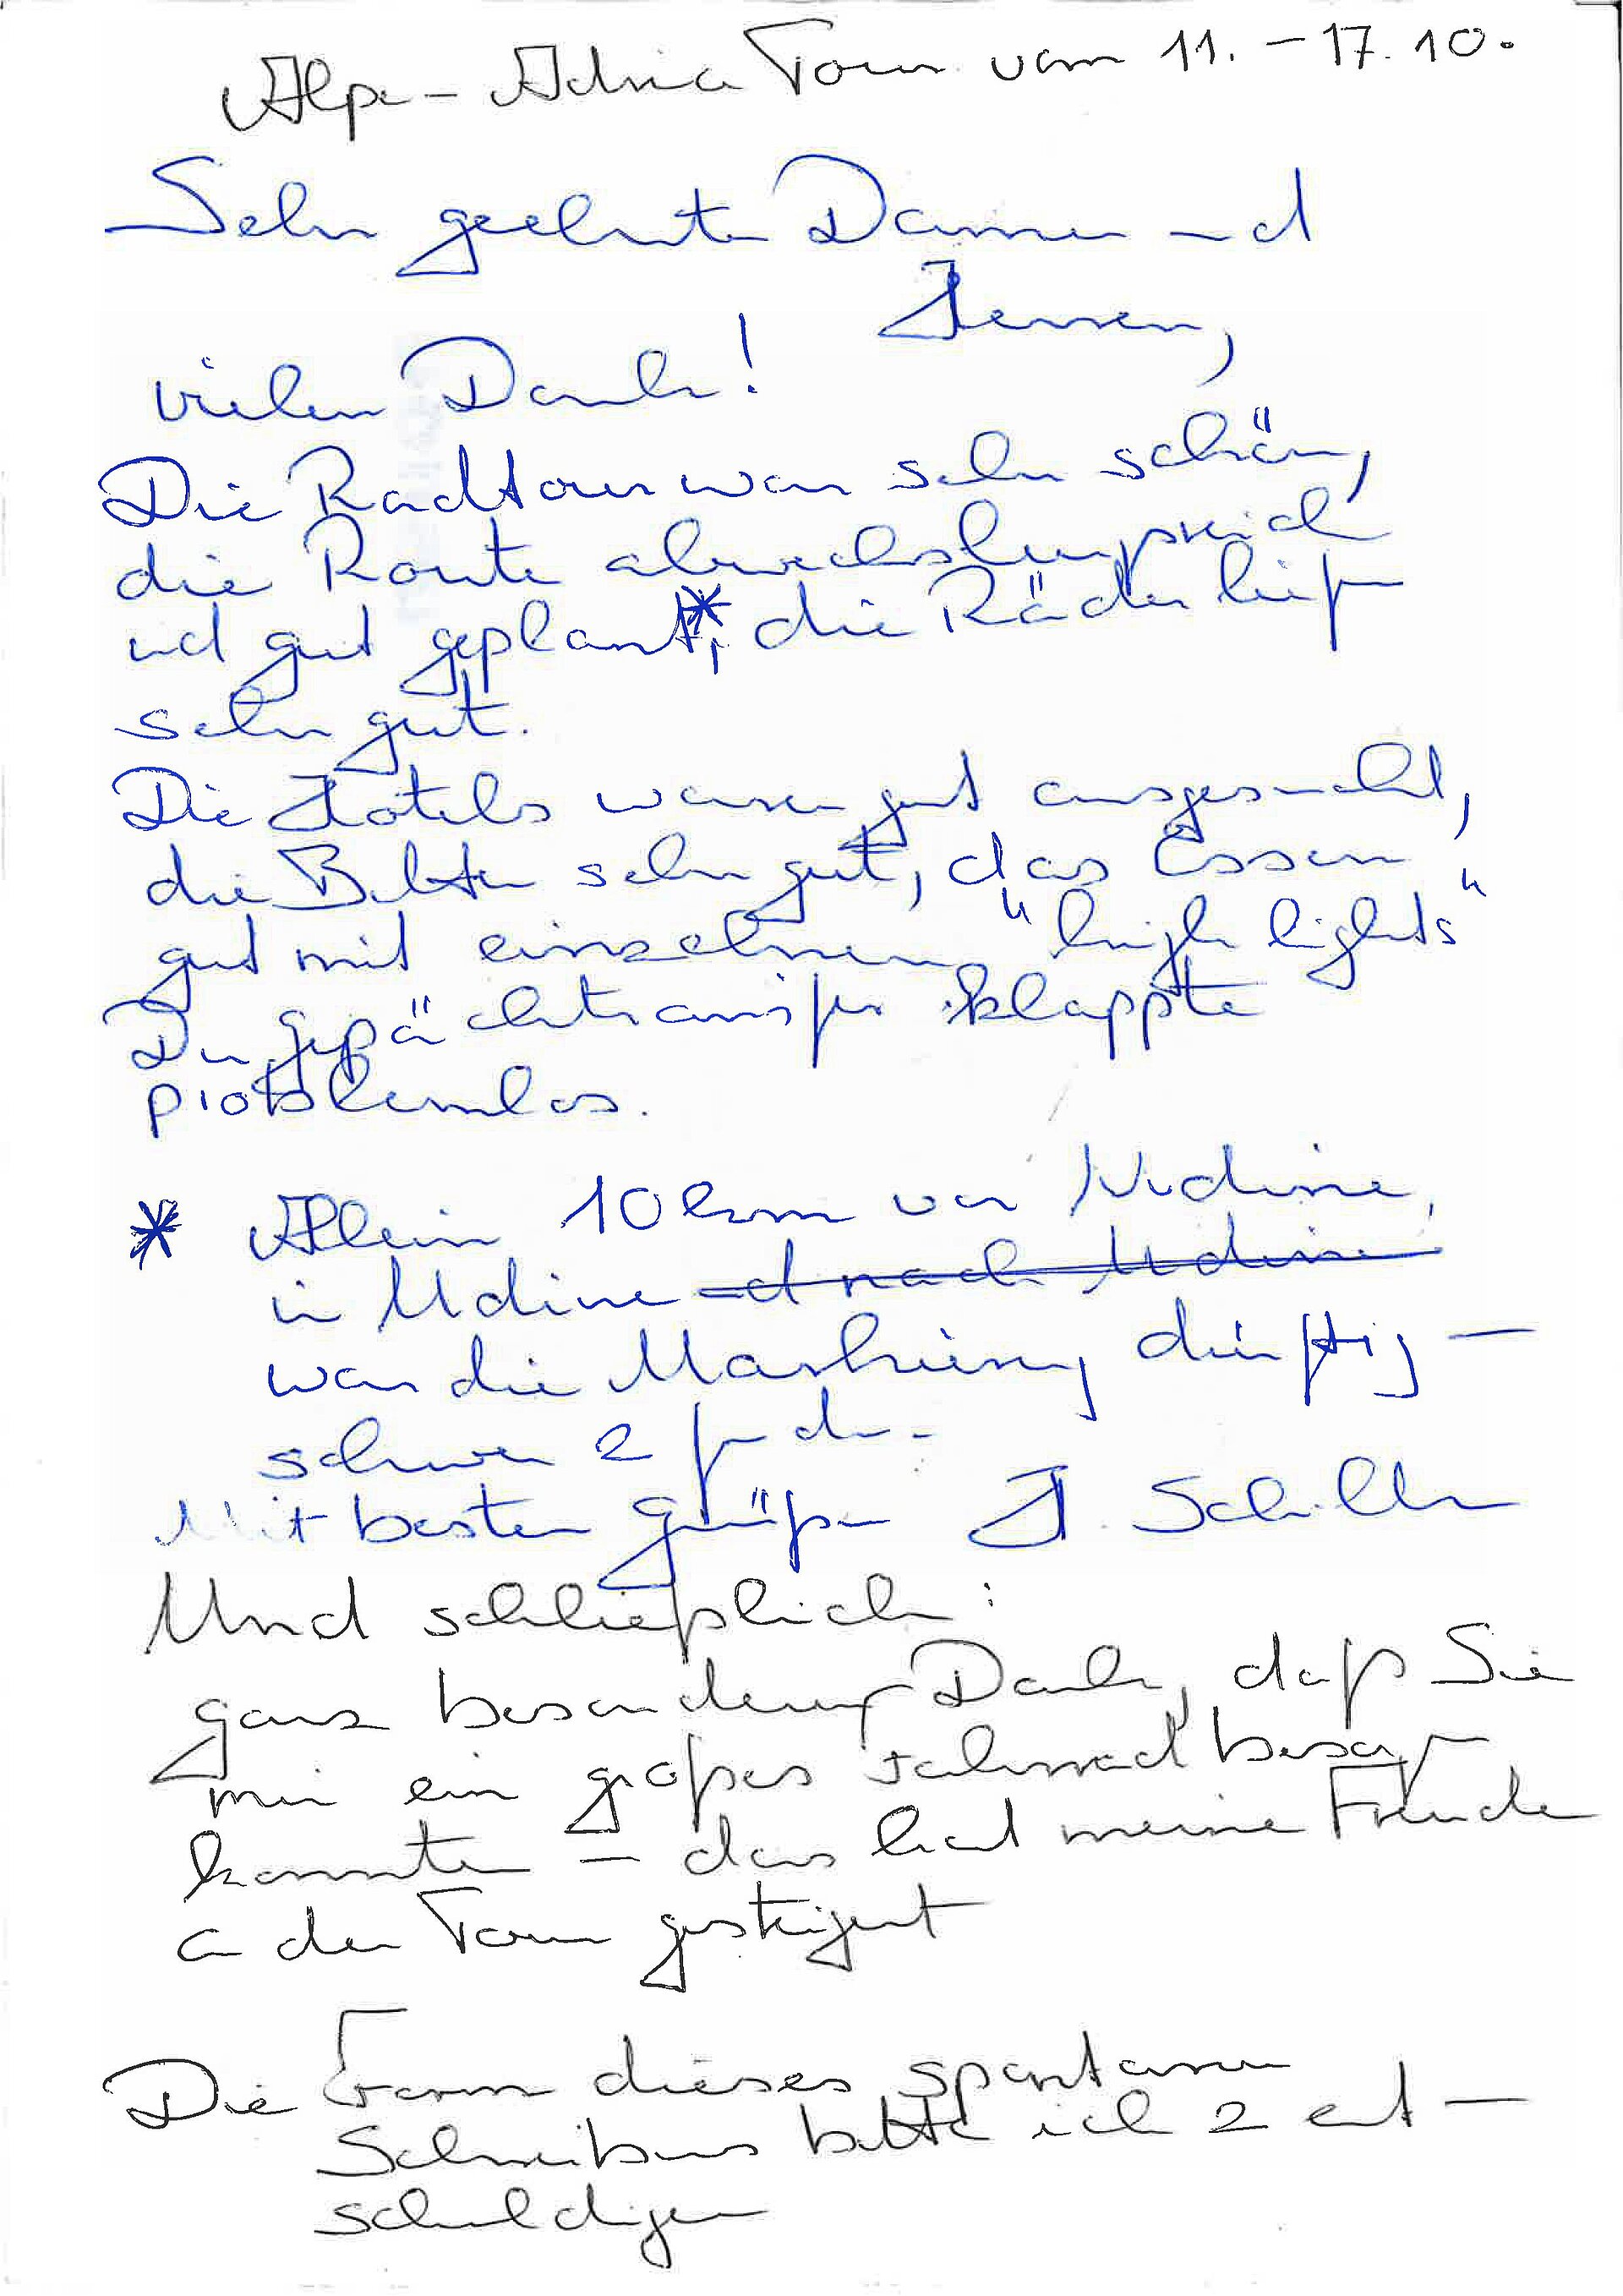 Alpe-Adria Tour vom 11. – 17. 10.
Sehr geehrte Damen und
Herren,
vielen Dank!
Die Radtour war sehr schön,
die Route abwechslungsreich
und gut geplant*, die Räder liefen
sehr gut.
Die Hotels waren gut ausgesucht,
die Betten sehr gut, das Essen
gut mit einzelnen "high lights"
Der Gepäcktransfer klappte
problemlos.
* Allein 10 km vor Udine,
in Udine und nach Udine
war die Markierung dürftig –
schwer 2 finden.
Mit besten Grüßen H. Schiller
Und schließlich:
ganz besonderen Dank, daß Sie
mir ein großes Fahrrad besorgen
konnten – das hat meine Freude
an der Tour gesteigert
Die Form dieses spontanen
Schreibens bitte ich 2 ent –
schuldigen